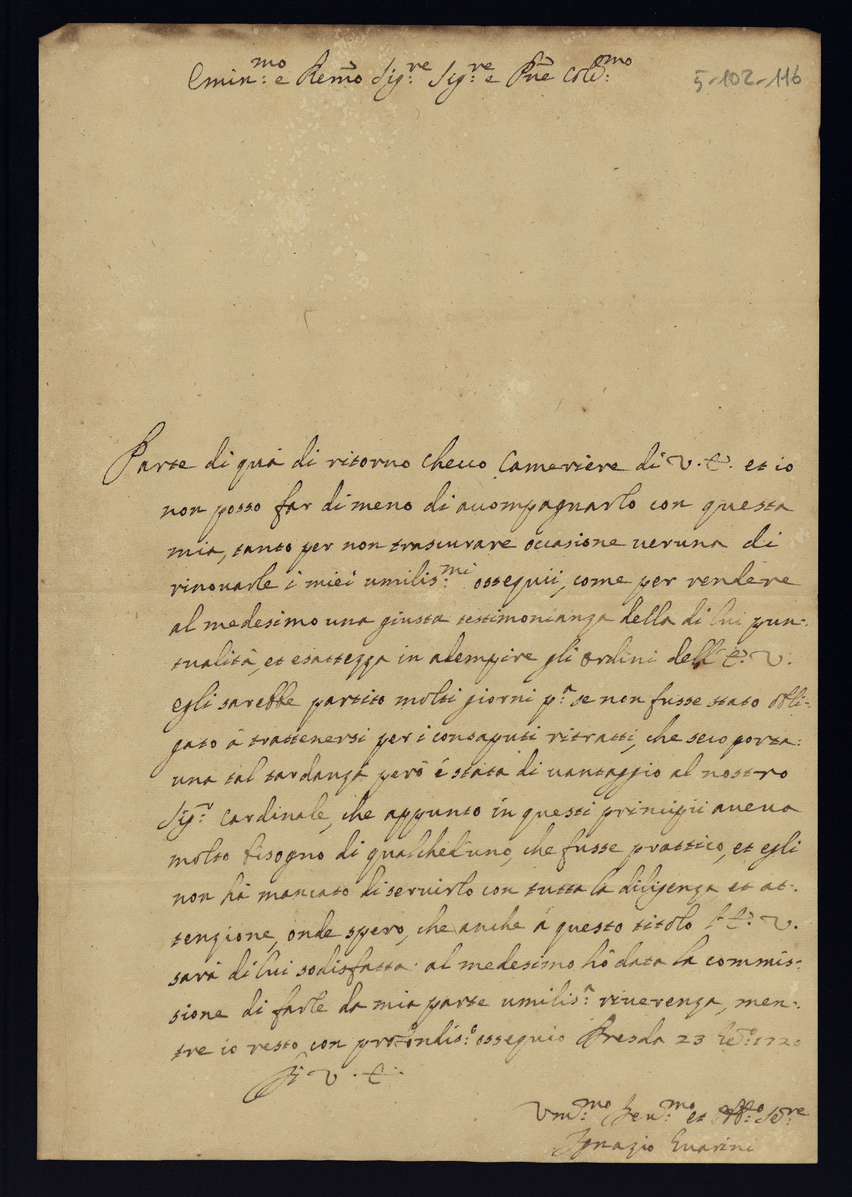 Emin:mo e Remo Sig:re Sig:re e Pne Cold:mo
5-102-116
Parte di quà di ritorno Checco Cameriere di V. E. et io
non posso far di meno di accompagnarlo con questa
mia, tanto per non trascurare occasione veruna di
rinovarle i miei umilis:mi ossequii, come per rendere
al medesimo una giusta testimonianza della di lui pun-
tualità, et esattezza in adempire gli ordini dell'E. V.
egli sarebbe partito molti giorni p:a se non fusse stato obli-
gato à trattenersi per i consaputi ritratti, che seco porta:
una tal tardanza però é stata di vantaggio al nostro
Sig:r Cardinale, che appunto in questi principii aveva
molto bisogno di qualched'uno, che fusse prattico, et egli
non hà mancato di servirlo con tutta la diligenza, et at-
tenzione, onde spero, che anche à questo titolo l'E. V.
sarà di lui sodisfatta: al medesimo hò data la commis-
sione di farle da mia parte umilis:a riverenza, men-
tre io resto con profondis:o ossequio Dresda 23 1720
Di V. E.
Um:mo Dev:mo et Obb:o Se:re
Ignazio Guarini